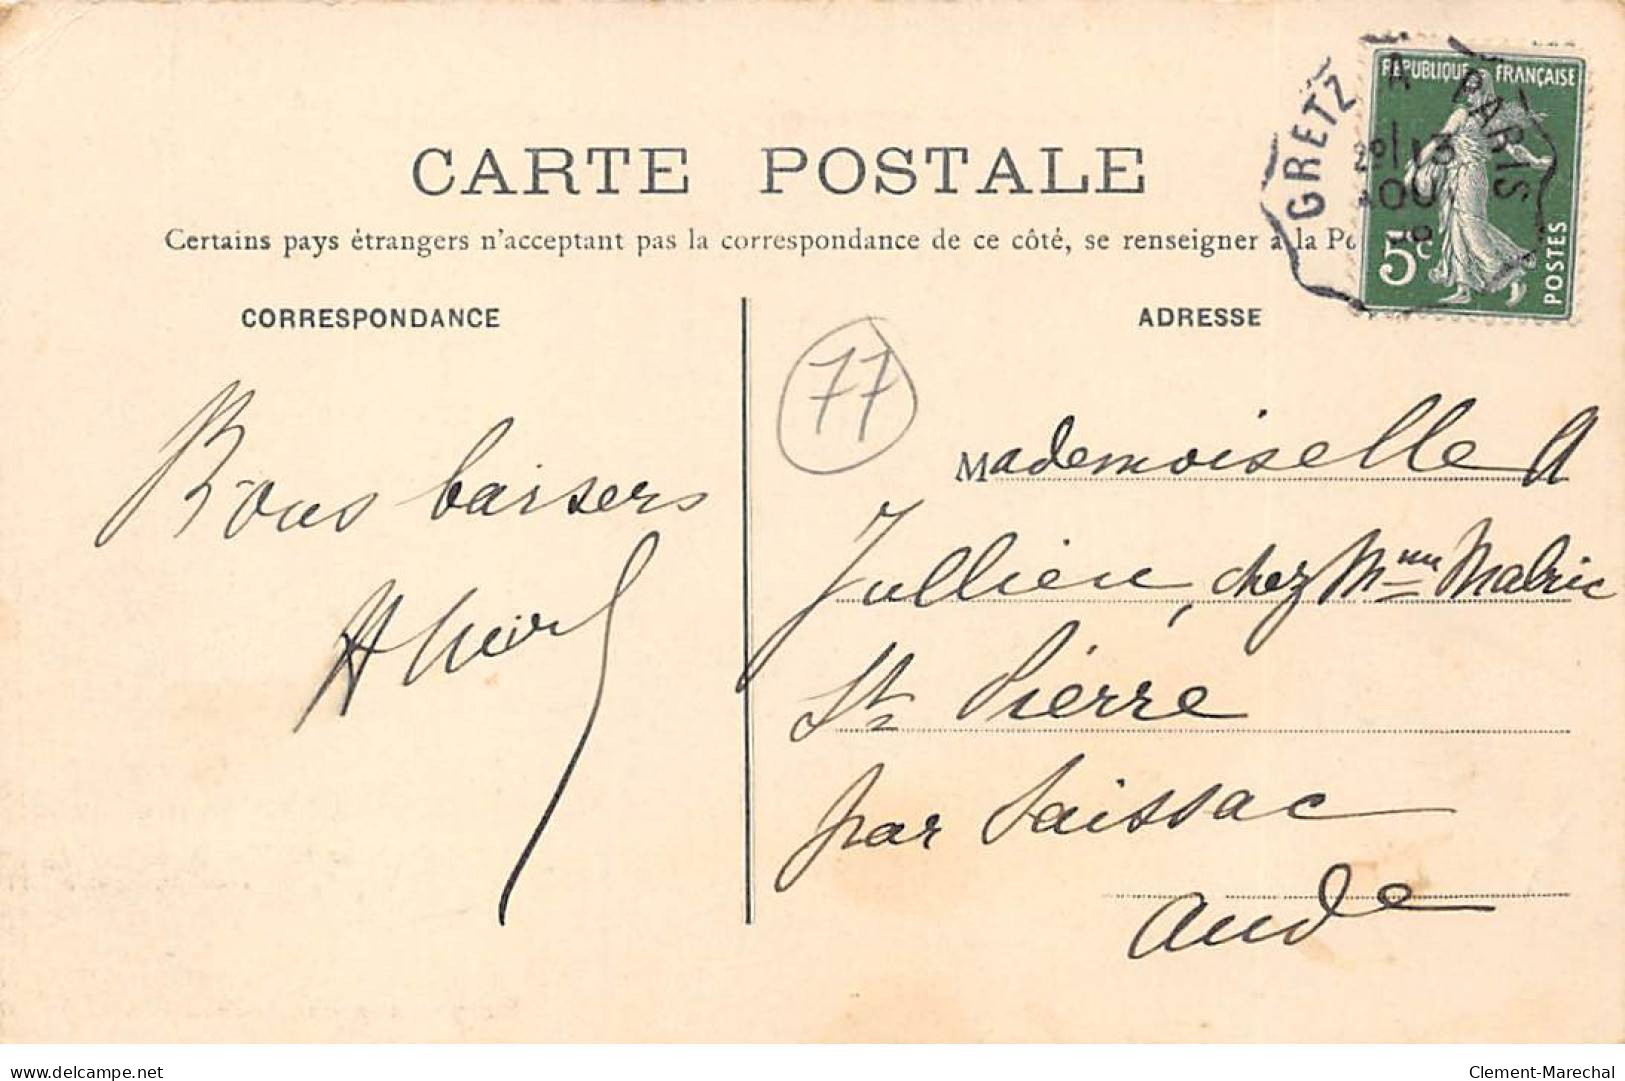 RÉPUBLIQUE FRANÇAISE
GRETZ A PARIS
5c
POSTES
CARTE POSTALE
Certains pays étrangers n'acceptant pas la correspondance de ce côté, se renseigner à la Po
CORRESPONDANCE
ADRESSE
77
Bons baisers
Mademoiselle A
Jullien, chez Mme Malric
St Pierre
par Saissac
Aude
delcampe.net
Clement-Marechal